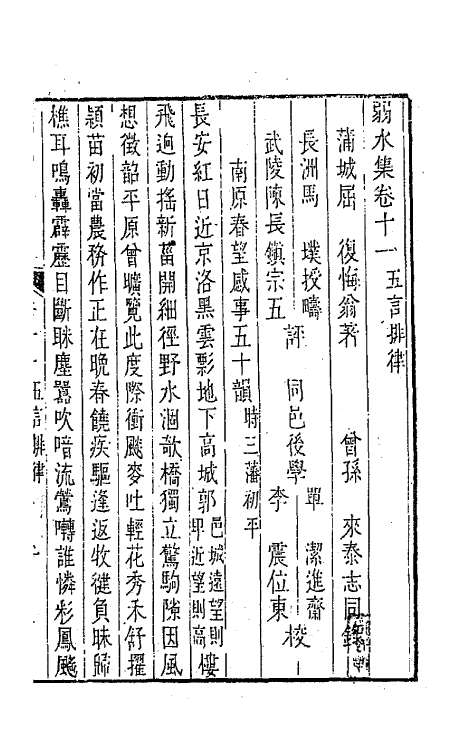 弱水集卷十一 五言排律
蒲城屈 復悔翁著 曾孫 來泰志同錄
長洲馬 墣授疇
武陵陳長鎮宗五 評 同邑後學 單 潔進齋
李 震位東 校
南原春望感事五十韻 時三藩初平
長安紅日近京洛黑雲影地下高城郭 邑城遠望則卑近望則高 僂
飛迥動搖新菑開細徑野水涸欹橋獨立驚駒隙因風
想徵韶平原曾曠覽此度際衝飇麥吐輕花秀禾舒擢
穎苗初當農務作正在晩春饒疾驅逢返牧健負昧歸
樵耳鳴轟霹靂目斷眯塵囂吹喑流鶯囀誰憐彩鳳飇